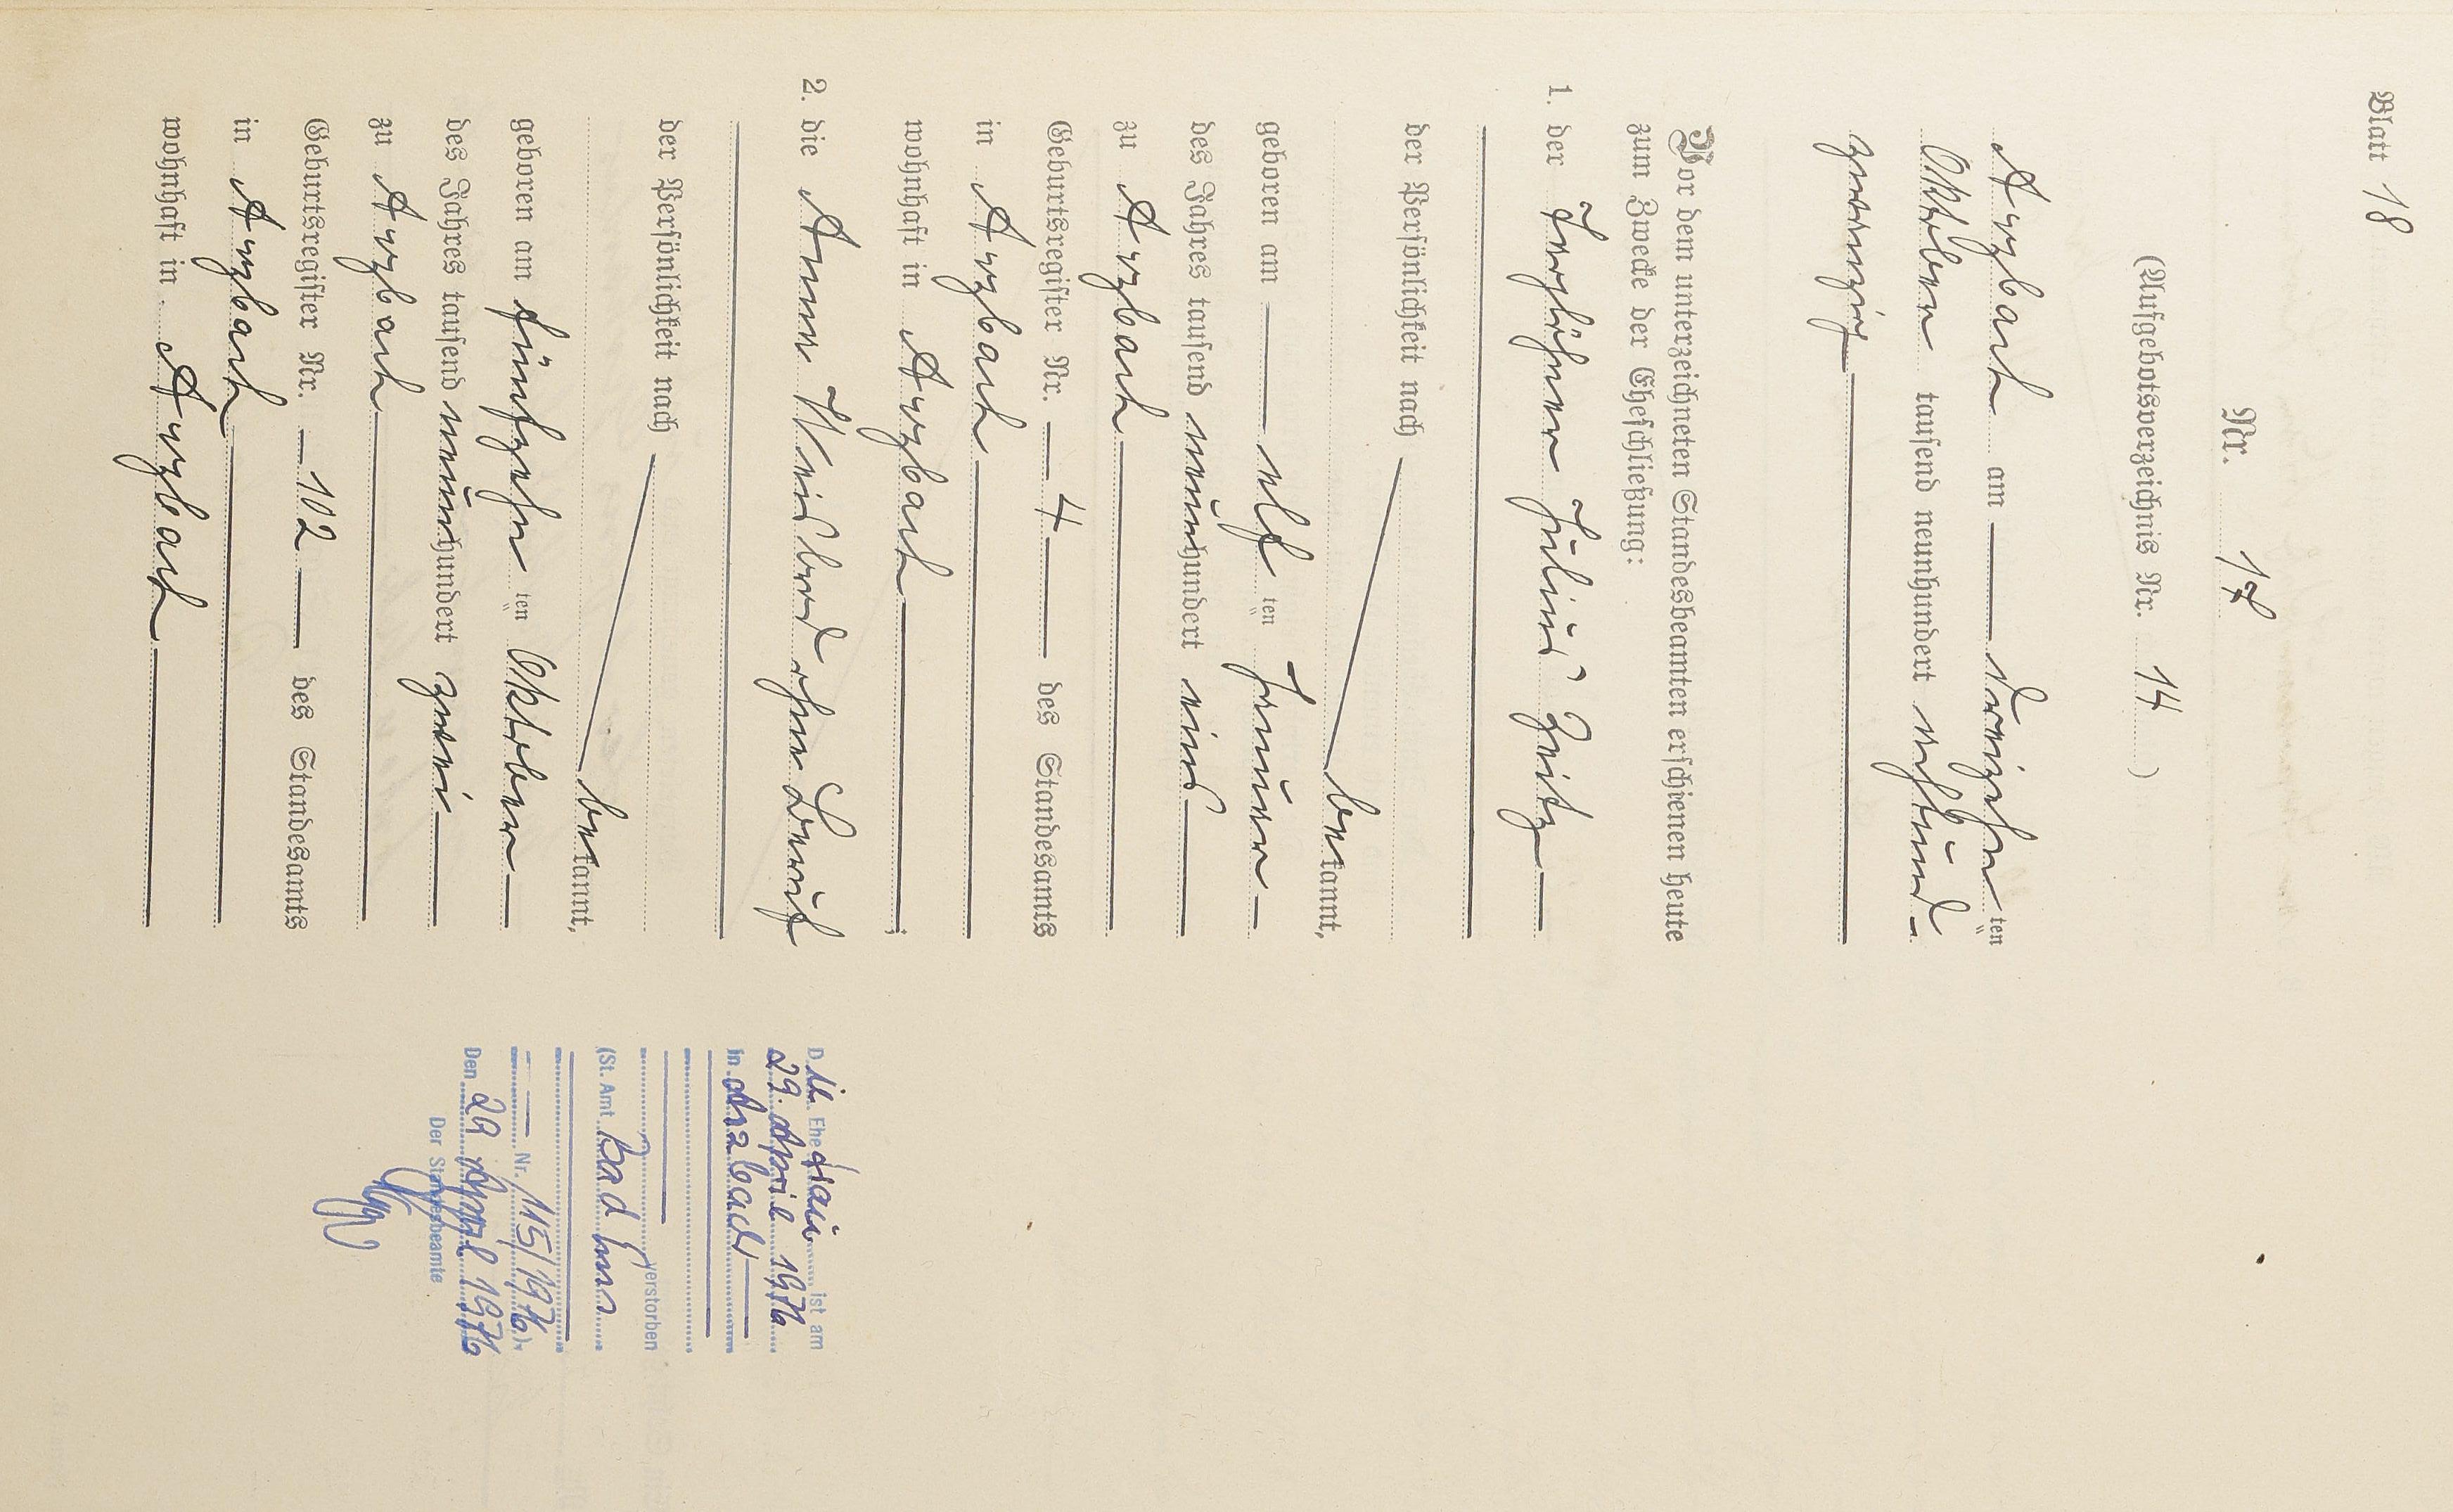 Blatt 18
Nr. 17
(Aufgebotsverzeichnis Nr. 14)
Arzbach am dreizehn ten
Oktober tausend neunhundert achtund-
zwanzig
Vor dem unterzeichneten Standesbeamten erschienen heute
zum Zwecke der Eheschließung:
1. der Taglöhner Julius Geitz
der Persönlichkeit nach
bekannt,
geboren am elf ten Januar
des Jahres tausend neunhundert eins
zu Arzbach
Geburtsregister Nr. 4 des Standesamts
in Arzbach
wohnhaft in Arzbach;
2. die Anna Weisbrod ohne Beruf
der Persönlichkeit nach
bekannt,
geboren am fünfzehn ten Oktober
des Jahres tausend neunhundert zwei
zu Arzbach
Geburtsregister Nr. 102 des Standesamts
in Arzbach
wohnhaft in Arzbach
Die Ehefrau ist am
29. April 1976
in Arzbach
verstorben
(St. Amt Bad Ems
Nr. 115/1976).
Den 29 April 1976
Der Standesbeamte